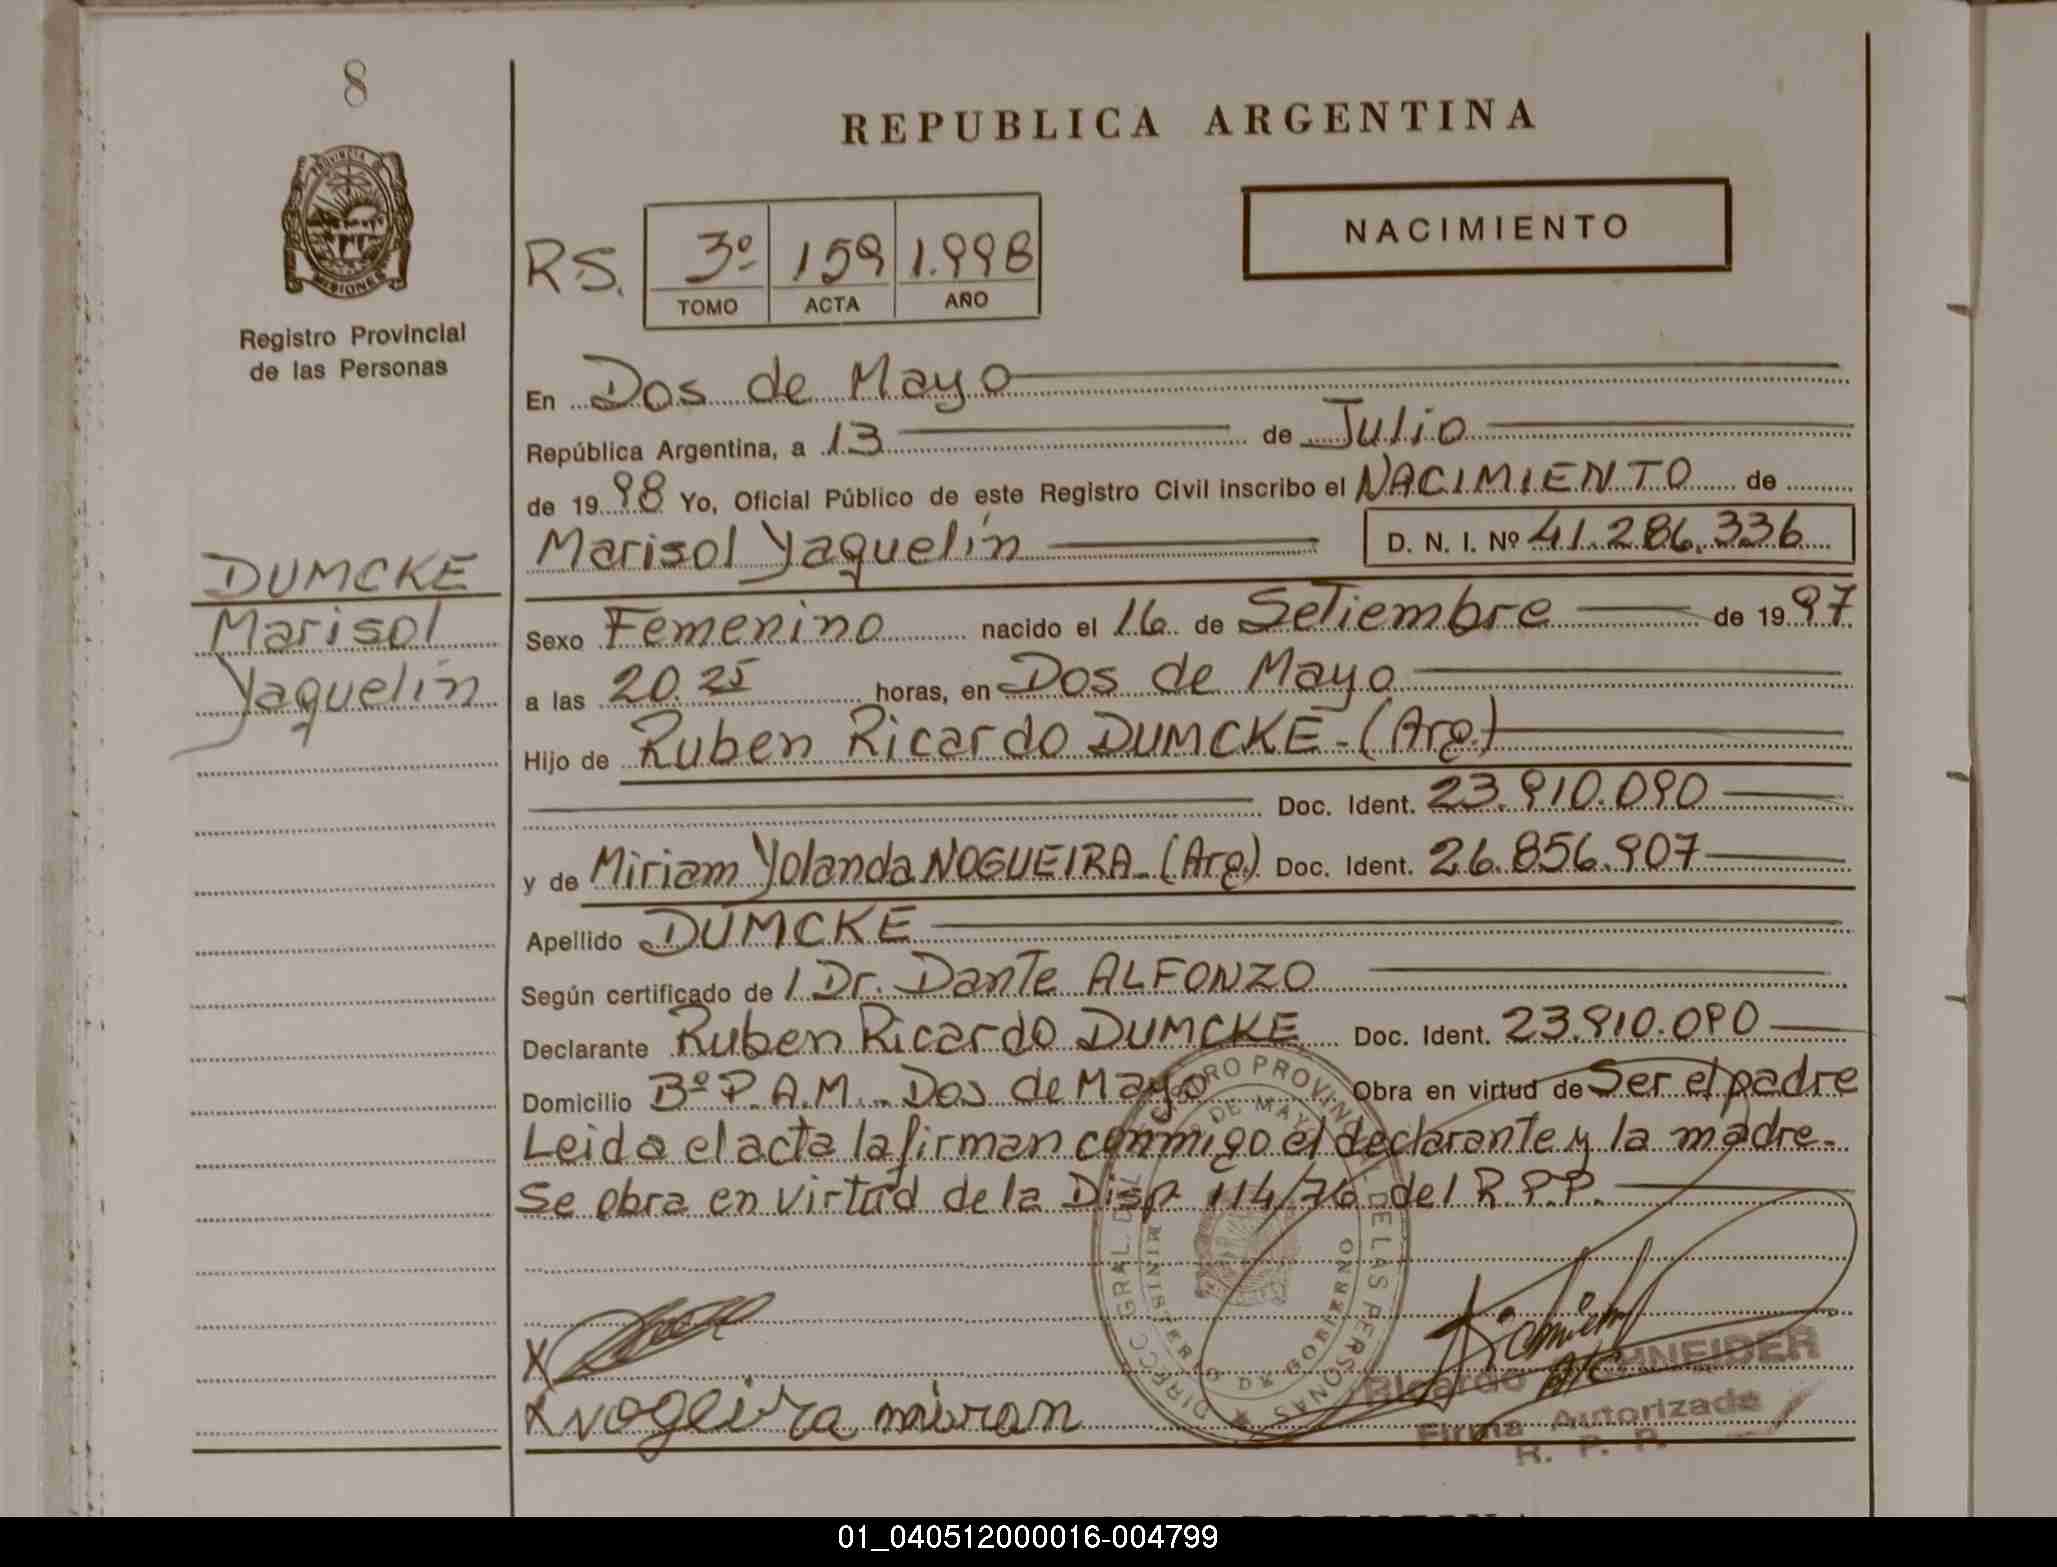 8
PROVINCIA DE
MISIONES
Registro Provincial
de las Personas
DUMCKE
Marisol
Yaquelín
REPUBLICA ARGENTINA
NACIMIENTO
RS. 3º 159 1.998
TOMO ACTA AÑO
En Dos de Mayo
República Argentina, a 13 de Julio
de 19 98 Yo, Oficial Público de este Registro Civil inscribo el NACIMIENTO de
Marisol Yaquelín D. N. I. Nº 41.286.336
Sexo Femenino nacido el 16 de Setiembre de 19 97
a las 20.25 horas, en Dos de Mayo
Hijo de Ruben Ricardo DUMCKE - (Arg.)
Doc. Ident. 23.910.090
y de Miriam Yolanda NOGUEIRA - (Arg.) Doc. Ident. 26.856.907
Apellido DUMCKE
Según certificado de / Dr. Dante ALFONZO
Declarante Ruben Ricardo DUMCKE Doc. Ident. 23.910.090
Domicilio Bº P.A.M. - Dos de Mayo Obra en virtud de Ser el padre
Leida el acta la firman conmigo el declarante y la madre.-
Se obra en virtud de la Disp. 114/76 del R.P.P.
DIRECC. GRAL. DEL REGISTRO PROVINCIAL DE LAS PERSONAS
2 DE MAYO
MINISTERIO DE GOBIERNO
X
X Nogeira miran
Ricardo SCHNEIDER
Firma Autorizada
R. P. P.
01_040512000016-004799